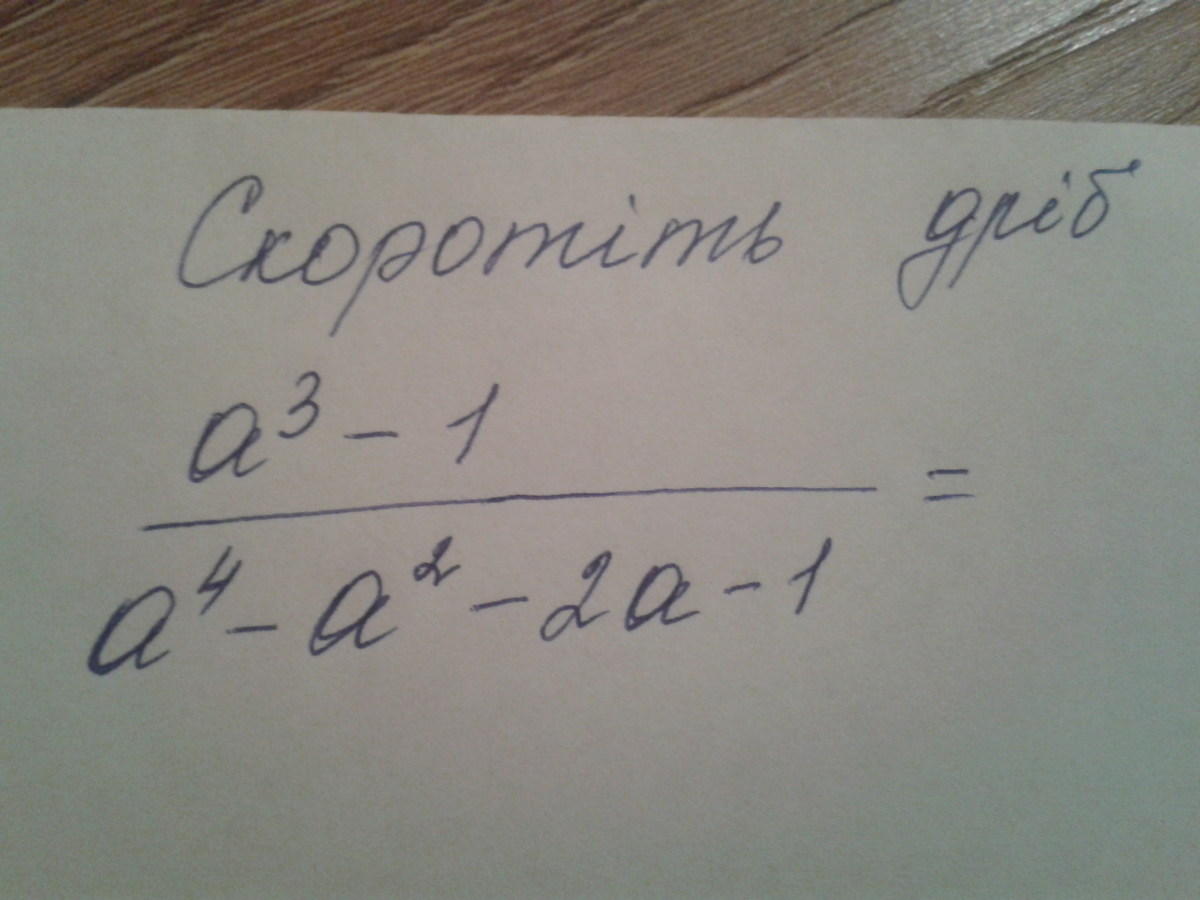 Скоротіть дріб
a³ - 1
a⁴ - a² - 2a - 1 =